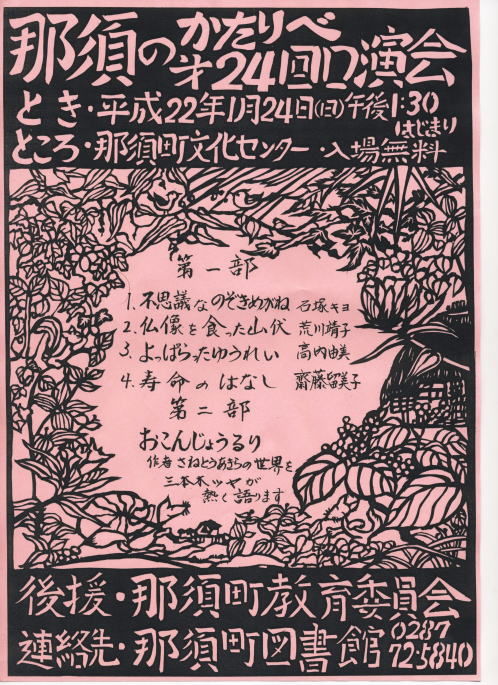 那須の かたりべ
才24回口演会
とき・平成22年1月24日(日)午後1:30
はじまり
ところ・那須町文化センター・入場無料
第一部
1. 不思議なのぞきめがね 石塚キヨ
2. 仏像を食った山伏 荒川靖子
3. よっぱらったゆうれい 高内由美
4. 寿命のはなし 齋藤留美子
第二部
おこんじょうるり
作者 さねとうあきらの世界を
三本木ツヤが
熱く語ります
後援・那須町教育委員会
連絡先・那須町図書館 0287
72-5840